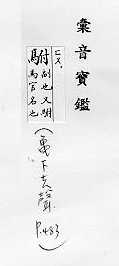 彙音寶鑑
ㄏㄨ、
駙 副也又駙
馬官名也
(龜下去聲
P.483)